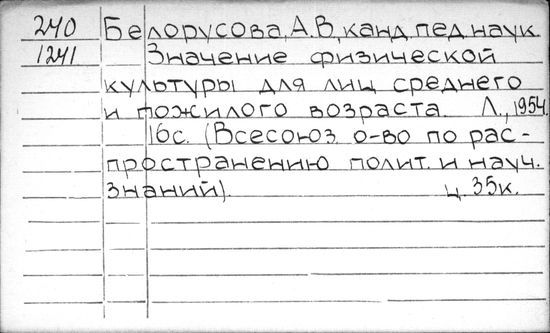 240 Белорусова, А.В, канд. пед. наук.
1241 Значение физической
культуры для лиц среднего
и пожилого возраста. Л., 1954.
16с. (Всесоюз. о-во по рас-
пространению полит. и науч.
знаний) ц. 35к.